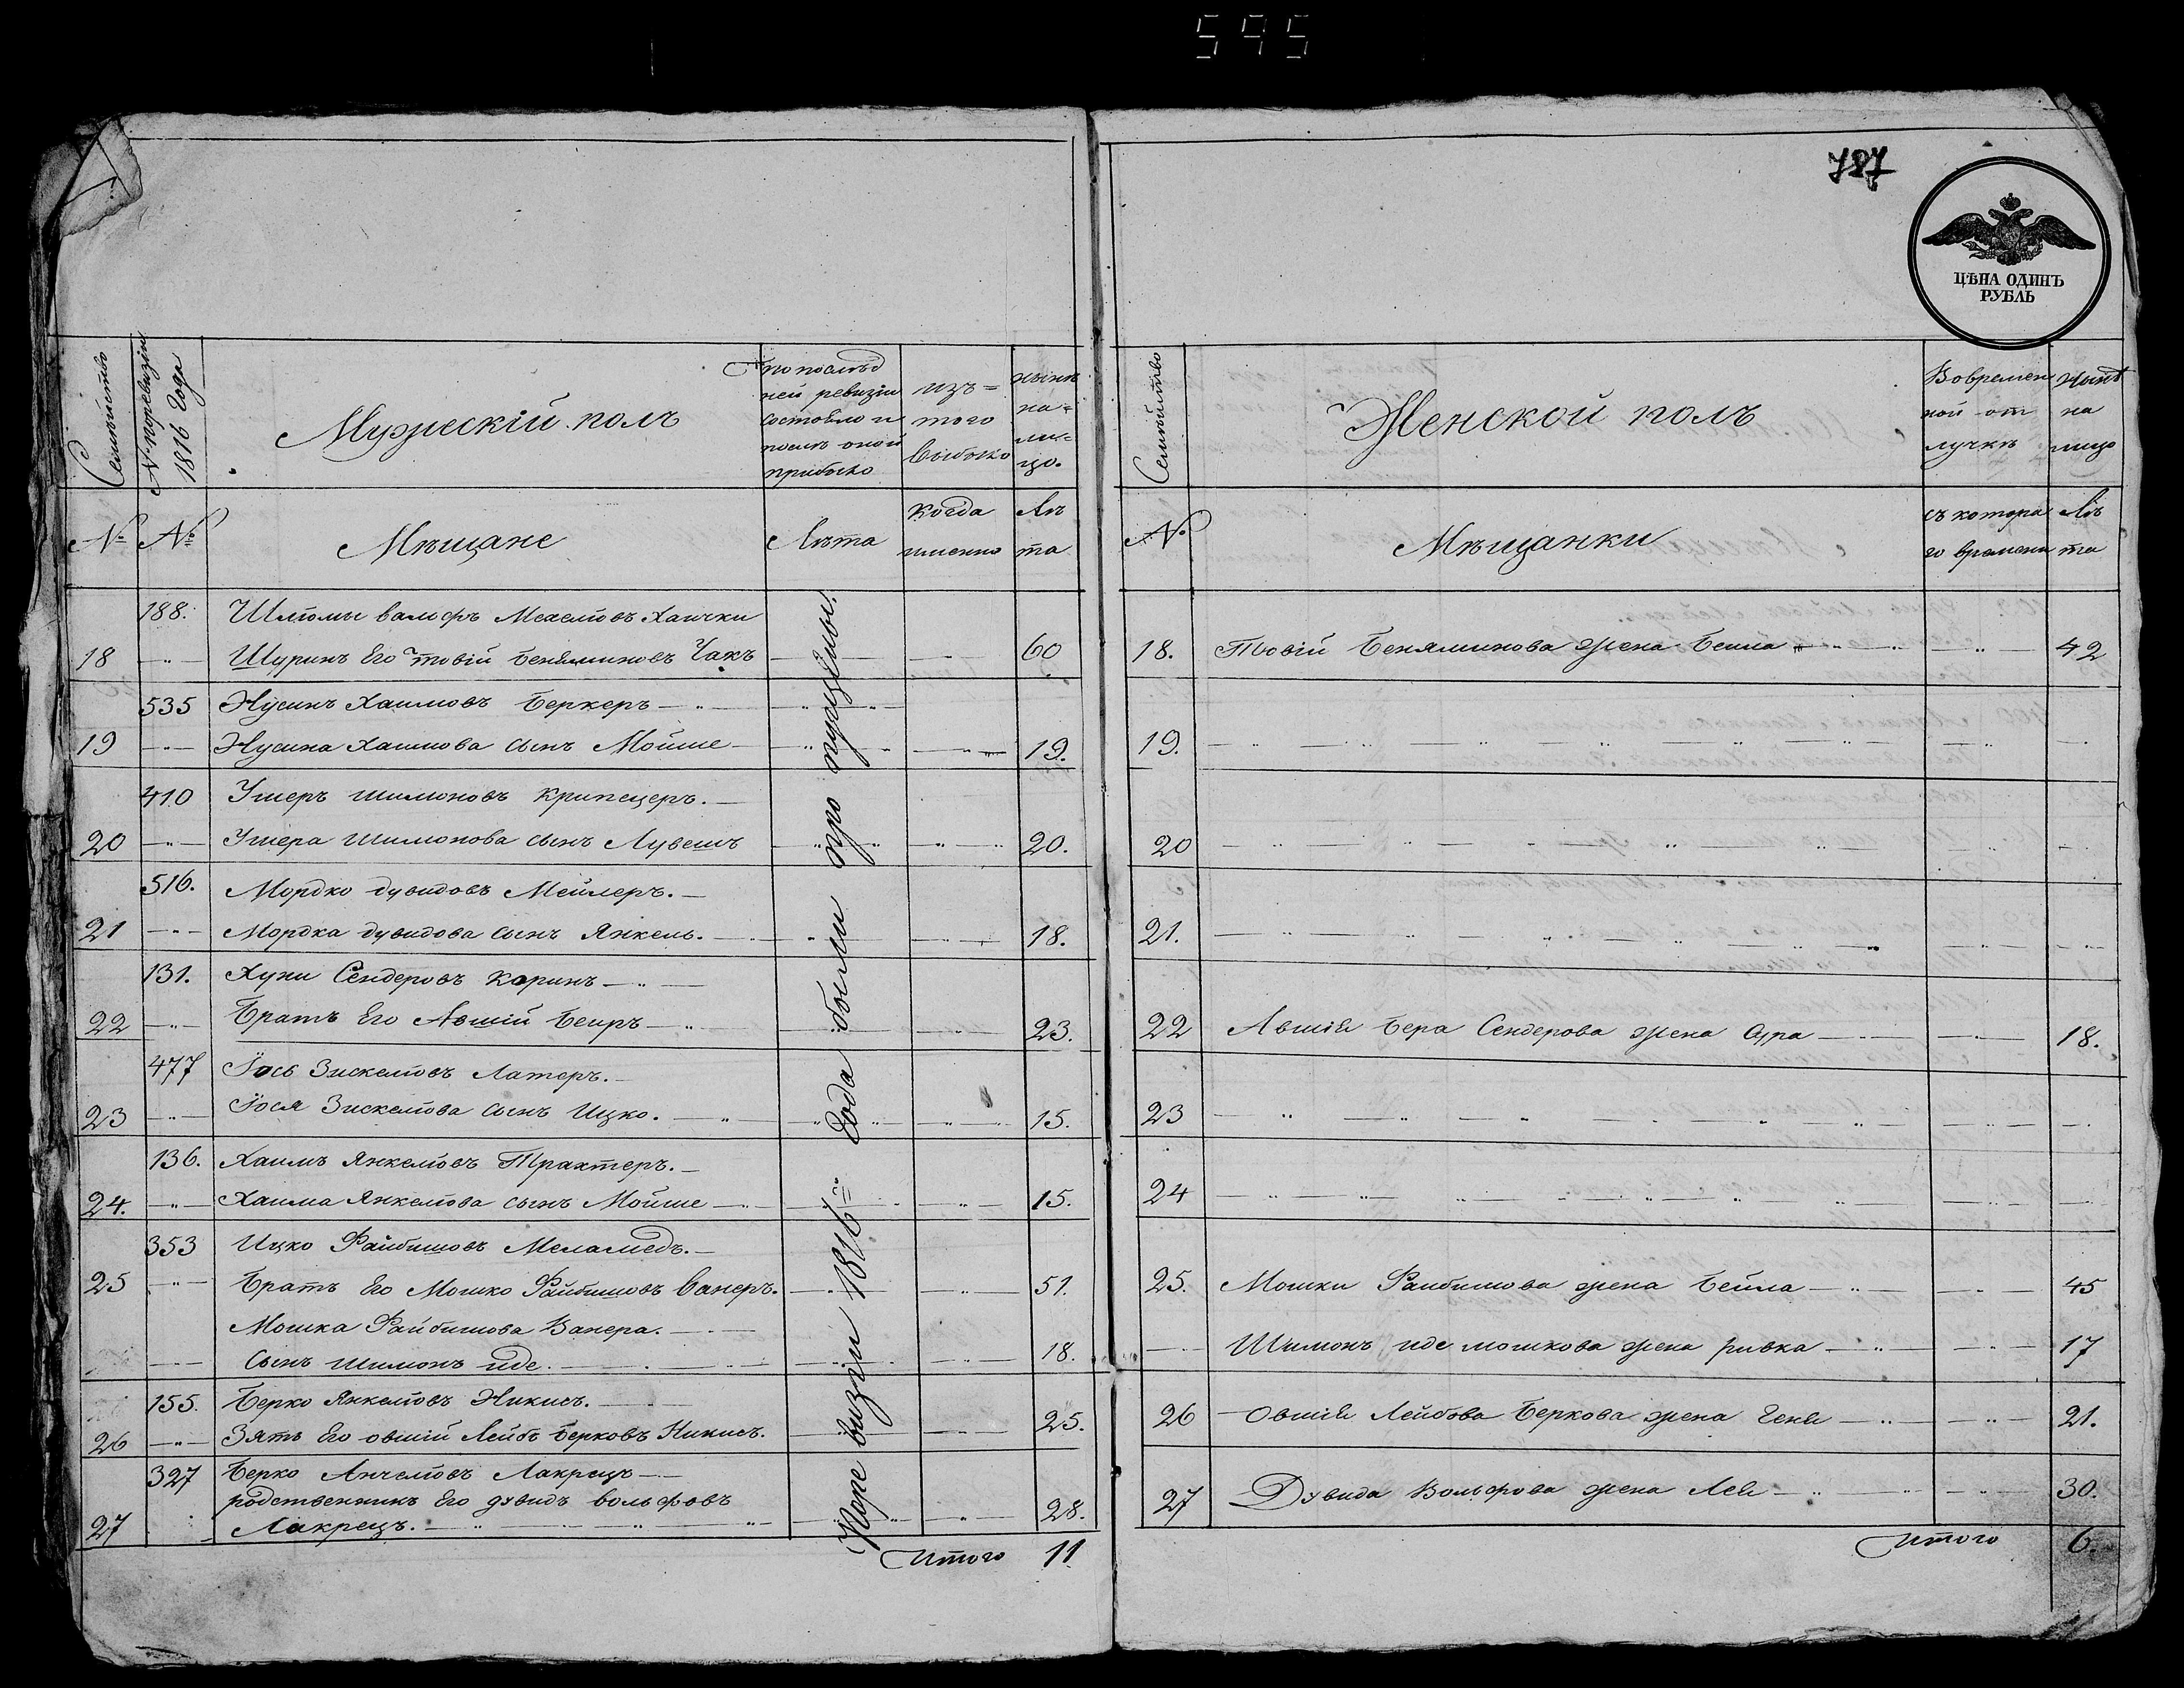 595
787
ЦѢНА ОДИНЪ
РУБЛЬ
Семѣйство
№ по ревизіи
1816 года
Мужескій полъ
по послѣд
ней ревизіи
состояло и
послѣ оной
прибыло
изъ
того
выбыло
нынѣ
на
ли
цо.
№ №
Мѣщане
Лѣта
когда
именно
Лѣ
та
188. Шлюмы вальфъ Мехелювъ Хаички
18 Шуринъ Его товій беняминовъ Чакъ 60
535 Нусинъ Хаимовъ беркеръ
19 Нусина Хаимова сынъ Мойше 19.
410 Умеръ шимоновъ крипецеръ.
20 Умера шимонова сынъ Лувешъ 20.
516. Мордко дувидовъ Мейлеръ.
21 Мордка дувидова сынъ Янкель. 18.
131. Хуни Сендеровъ Коринъ
22 братъ Его Авшій беиръ 23.
477 Іось Зискелювъ Латеръ.
23 Іося Зискелюва сынъ Ицко. 15.
136. Хаимъ Янкелювъ Трахтеръ.
24. Хаима Янкелюва сынъ Мойше 15.
353 Ицко Файбишовъ Меламедъ.
25 братъ Его Мошко Файбишовъ Ванеръ. 51.
Мошка Файбишова Ванера.
сынъ шимонъ иде. 18.
155. берко Янкелювъ Никисъ.
26 Зять Его овшій Лейбъ берковъ Никисъ. 25.
327 берко Анчелювъ Лакрецъ
родственникъ Его дувидъ вольфовъ
27 Лакрецъ. 28.
Итого 11
Пере визіи 1816го года были про пущены.
Семѣйство
Женской полъ
Вовремен
ной от
лучкѣ
нынѣ
на
лицо
№
Мѣщанки
съ котора
го времени
Лѣ
та
18. Товій беняминова жена беила 42
19.
20
21.
22 Авшія бера Сендерова жена Сура 18.
23
24
25. Мошки Раибишова жена бейла 45
Шимонъ иде мошкова жена ривка 17
26 Овшія Лейбова беркова жена Геня 21.
27 Дувида Вольфова жена Лея 30.
Итого 6.